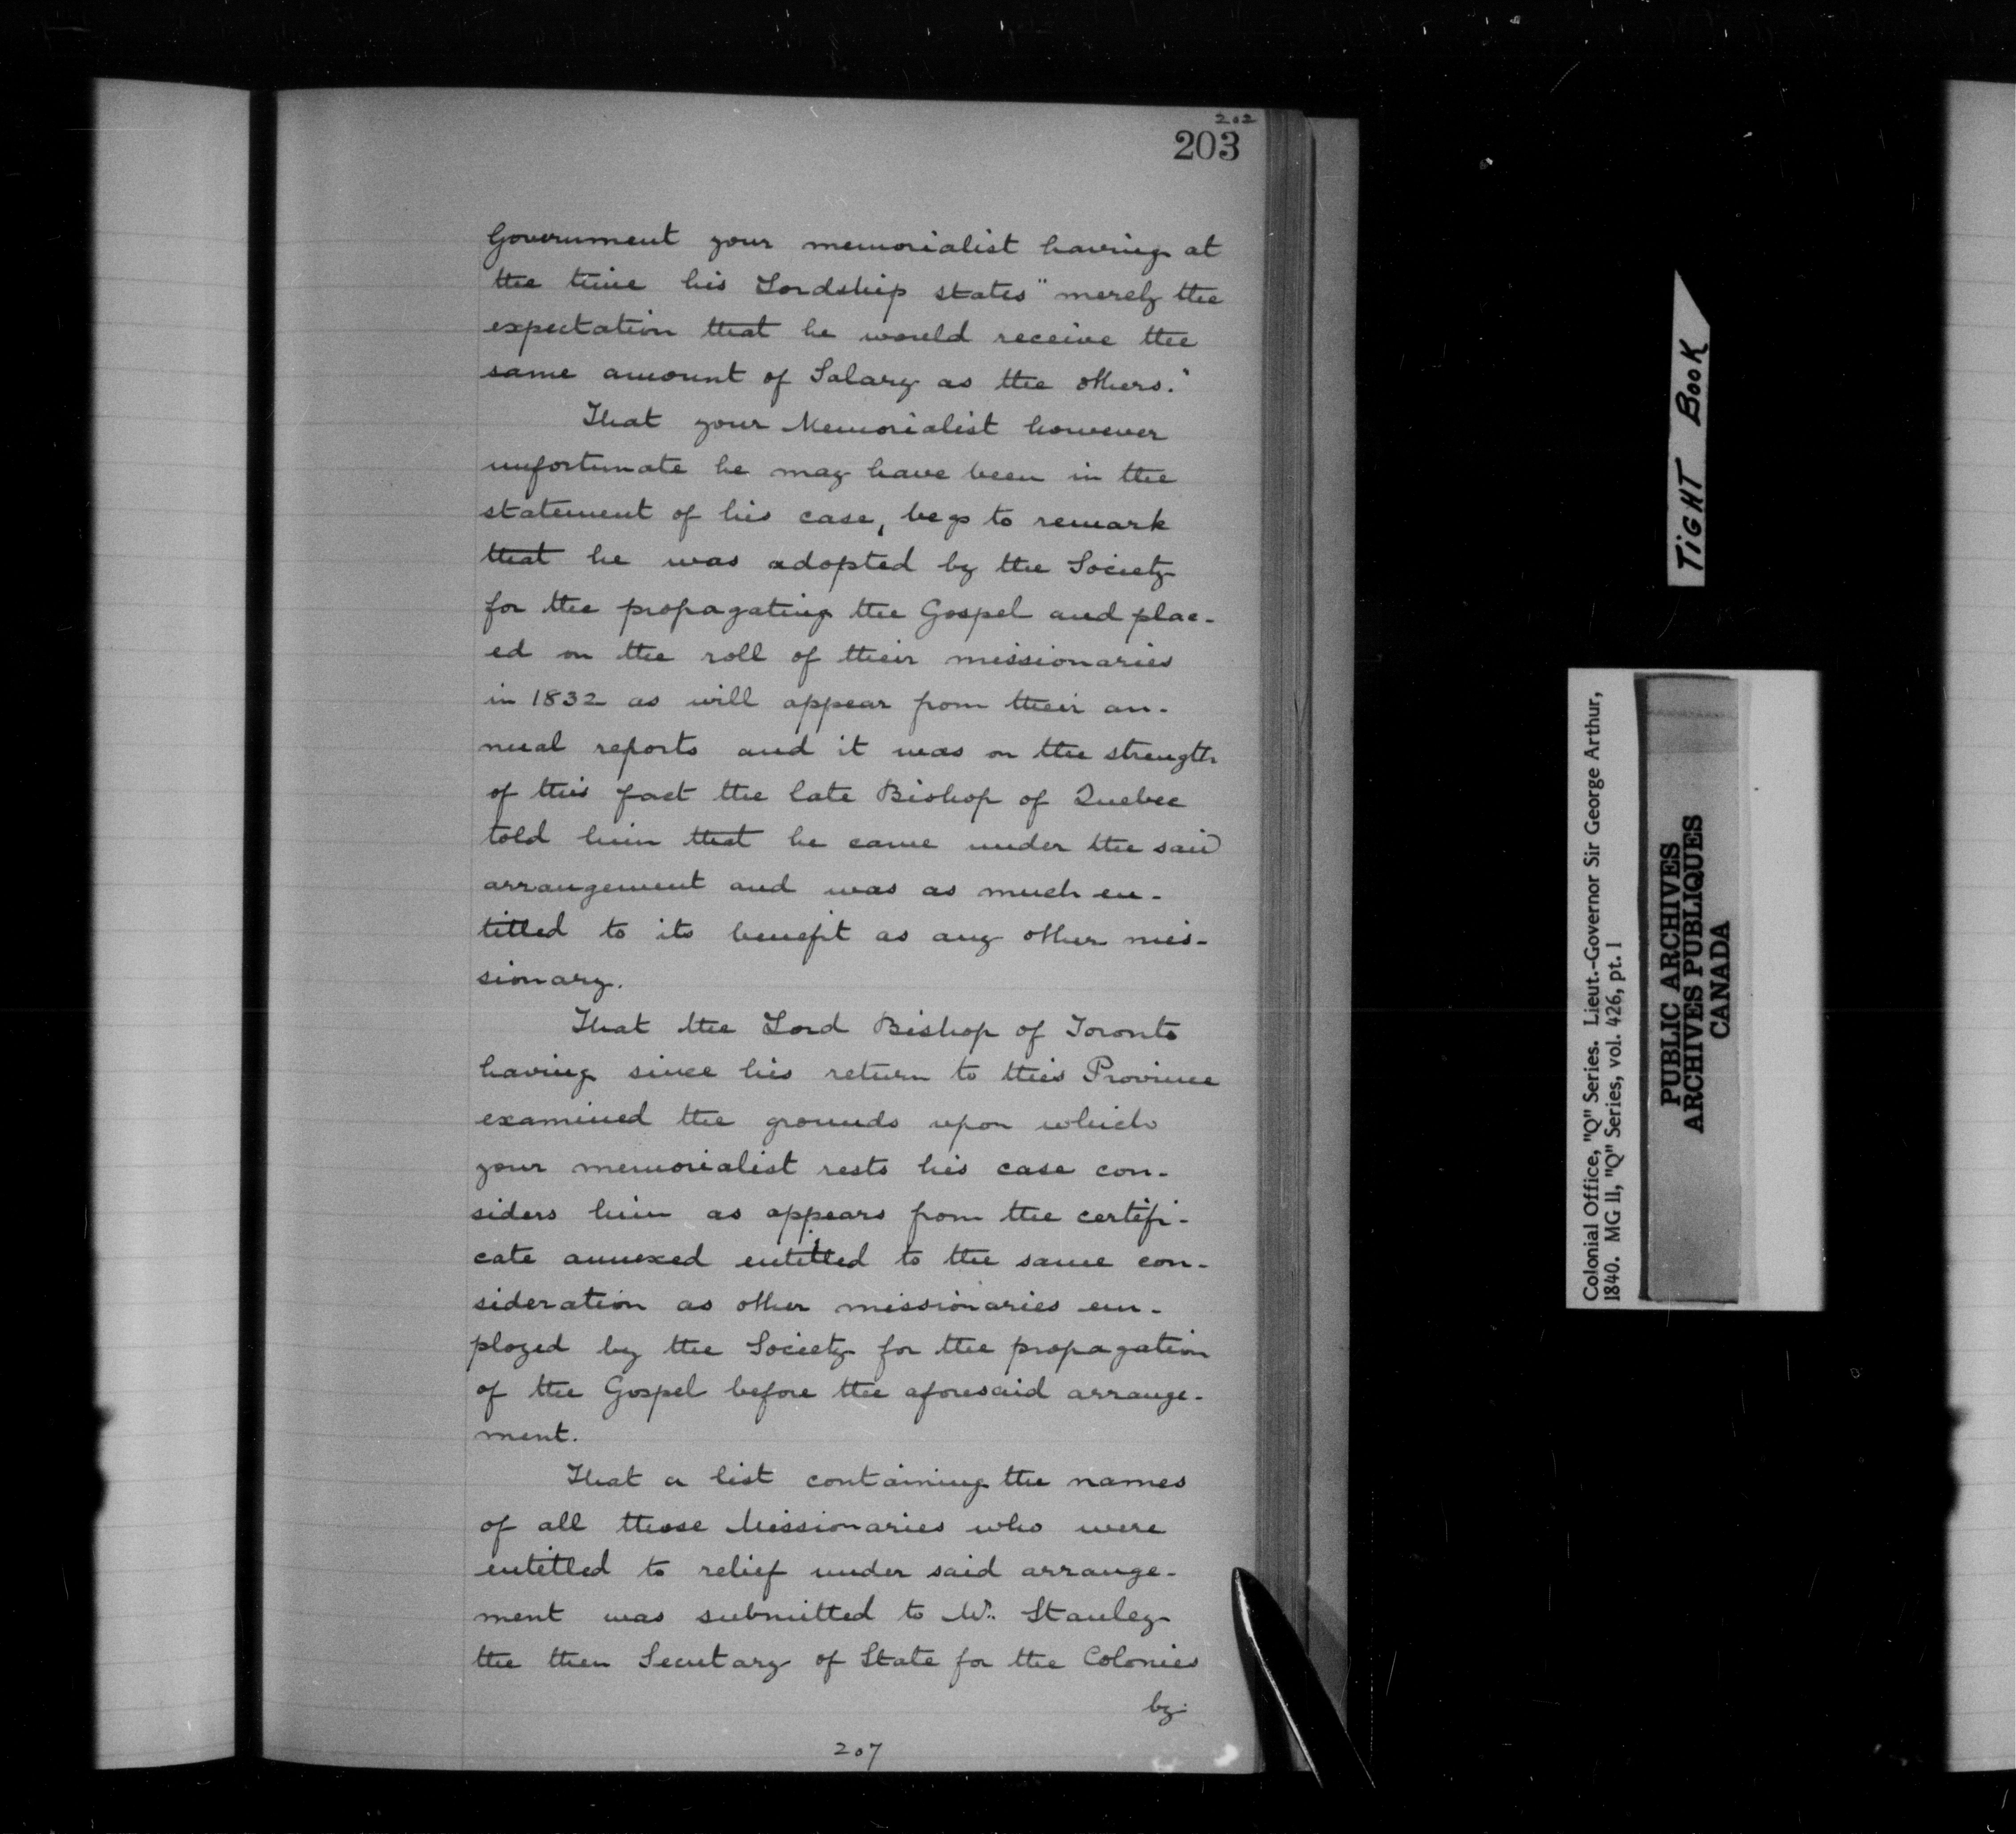 202
203
Government your memorialist having at
the time his Lordship states "merely the
expectation that he would receive the
same amount of Salary as the others."
That your Memorialist however
unfortunate he may have been in the
statement of his case, begs to remark
that he was adopted by the Society
for the propagating the Gospel and plac-
ed on the roll of their missionaries
in 1832 as will appear from their an-
nual reports and it was on the strength
of this fact the late Bishop of Quebec
told him that he came under the said
arrangement and was as much en-
titled to its benefit as any other mis-
sionary.
That the Lord Bishop of Toronto
having since his return to this Province
examined the grounds upon which
your memorialist rests his case con-
siders him as appears from the certifi-
cate annexed entitled to the same con-
sideration as other missionaries em-
ployed by the Society for the propagation
of the Gospel before the aforesaid arrange-
ment.
That a list containing the names
of all those Missionaries who were
entitled to relief under said arrange-
ment was submitted to Mr. Stanley
the then Secretary of State for the Colonies
by
207
TIGHT BOOK
Colonial Office, "Q" Series. Lieut.-Governor Sir George Arthur,
1840. MG 11, "Q" Series, vol. 426, pt. 1
PUBLIC ARCHIVES
ARCHIVES PUBLIQUES
CANADA